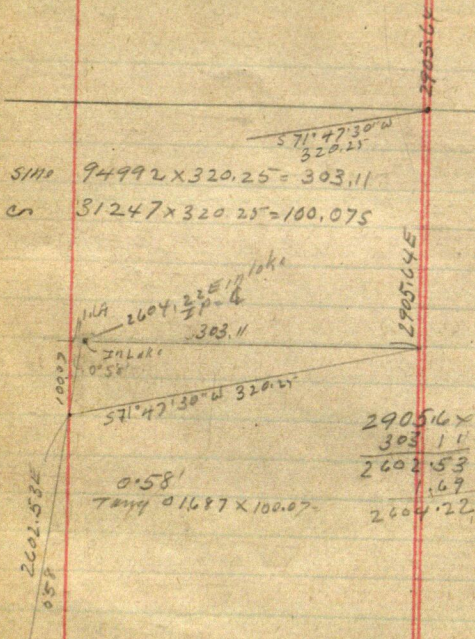 2905.64
S 71° 47' 30" W
320.25
sine 94992 × 320.25 = 303.11
cos 31247 × 320.25 = 100.075
2905.64 E
2604.22 E in lake
IP =
1.69
303.11
In Lake
0°58'
100.07
S 71° 47' 30" W 320.25
2905.64
303 11
2602.53
1.69
2604.22
0°58'
Tang 01687 × 100.07
2602.53 E
0 58